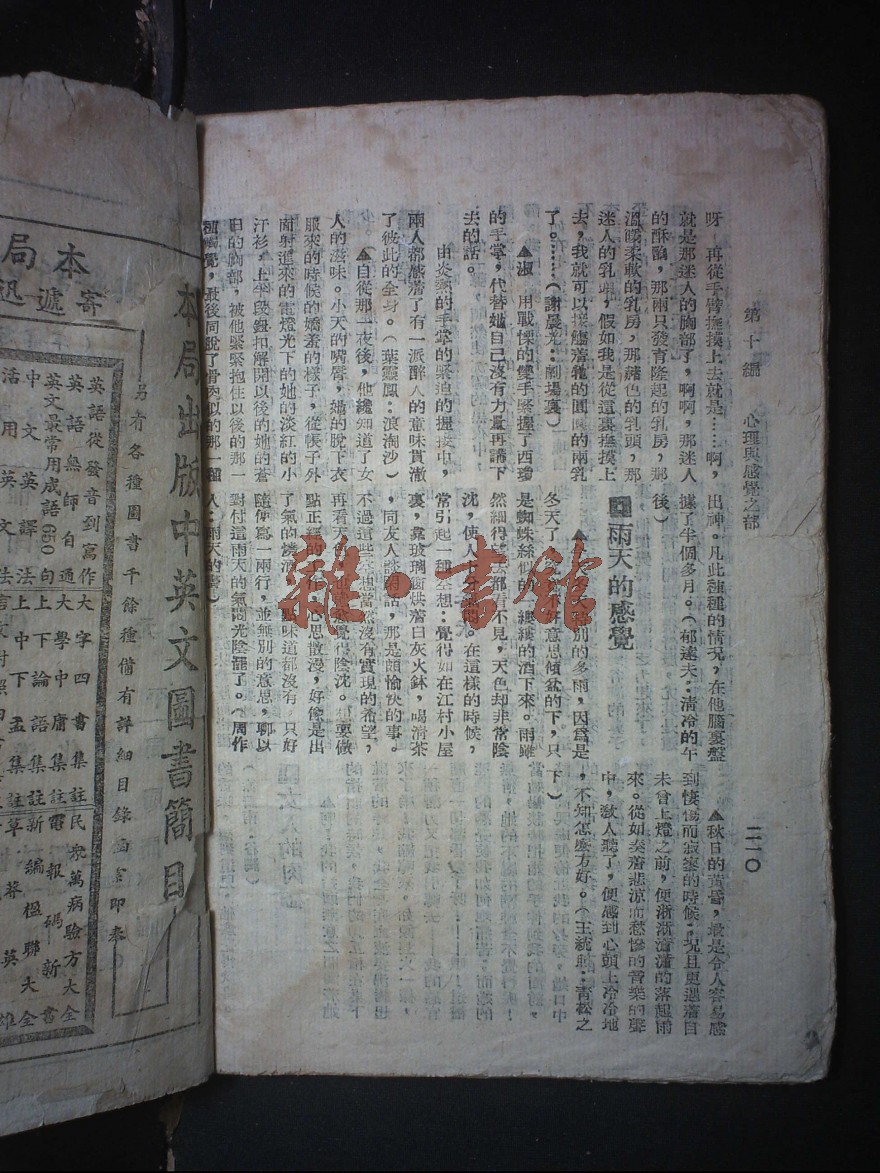 第十編　心理與感覺之部
二一〇
呀　再從手臂撫摸上去就是……啊，
就是那迷人的胸部了，啊啊，那迷人
的酥胸，那兩只發育隆起的乳房，那
溫暖柔軟的乳房，那赭色的乳頭，那
迷人的乳頭，假如我是從這裏撫摸上
去，我就可以接觸着牠的圓味的兩乳
了。……（謝晨光：劇場裏）
▲淑　用戰慄的雙手緊握了西瓊
的手掌，代替她自己沒有力量再講下
去的話。
由炎熱的手掌的緊迫的握接中，
兩人都感滯了有一派醉人的意味貫澈
了彼此的全身。（葉靈鳳：浪淘沙）
▲自從那一夜後，他纔知道了女
人的滋味。小天的嘴唇，她的脫下衣
服來的時候的嬌羞的樣子，從帳子外
面射道來的電燈光下的她的淡紅的小
汗衫，上半段鈕扣解開以後的她的蒼
白的胸部，被他緊緊抱住以後的那一
種觸覺，最後同脫了骨肉似的那一種
出神。凡此種種的情況，在他腦裏盤
據了半個多月。（郁達夫：清冷的午
後）
雨天的感覺
▲今冬特別的多雨，因爲是
冬天了，不好意思傾盆的下，只
是蜘蛛絲似的一縷縷的洒下來。雨雖
然細得望去都看不見，天色却非常陰
沈，使人十分氣悶。在這樣的時候，
常引起一種空想：覺得如在江村小屋
裏，靠玻璃窗烘着白灰火鉢，喝清茶
，同友人談閒話，那是頗愉快的事。
不過這些空想當然沒有實現的希望，
再看天色，也就愈覺得陰沈。想要做
點正經的工作，心思散漫，好像是出
了氣的燒酒，一點味道都沒有　只好
隨便寫一兩行，並無別的意思，聊以
對付這雨天的氣悶光陰罷了。（周作
人：雨天的書）
▲秋日的黃昏，最是令人容易感
到悽傷而寂寥的時候；況且更遇着自
未曾上燈之前，便淅淅瀟瀟的落起雨
來。從如奏着悲涼而愁慘的音樂的聲
中，敎人聽了，便感到心頭上冷冷地
，不知怎麽方好。（王統照：青松之
下）
雜·書館
本局出版中英文圖書簡目
另有各種圖書千餘種備有詳細目錄函索即奉
本局
寄遞迅
英語從發音到寫作
英語無師自通
英文最常用成語650句
中文英譯法
活用英文法
大字四書集註
大學中庸集註
上下論語集註
上中下孟集註
民衆萬病驗方大全
電報碼新書
新編楹聯大全
草莽英雄